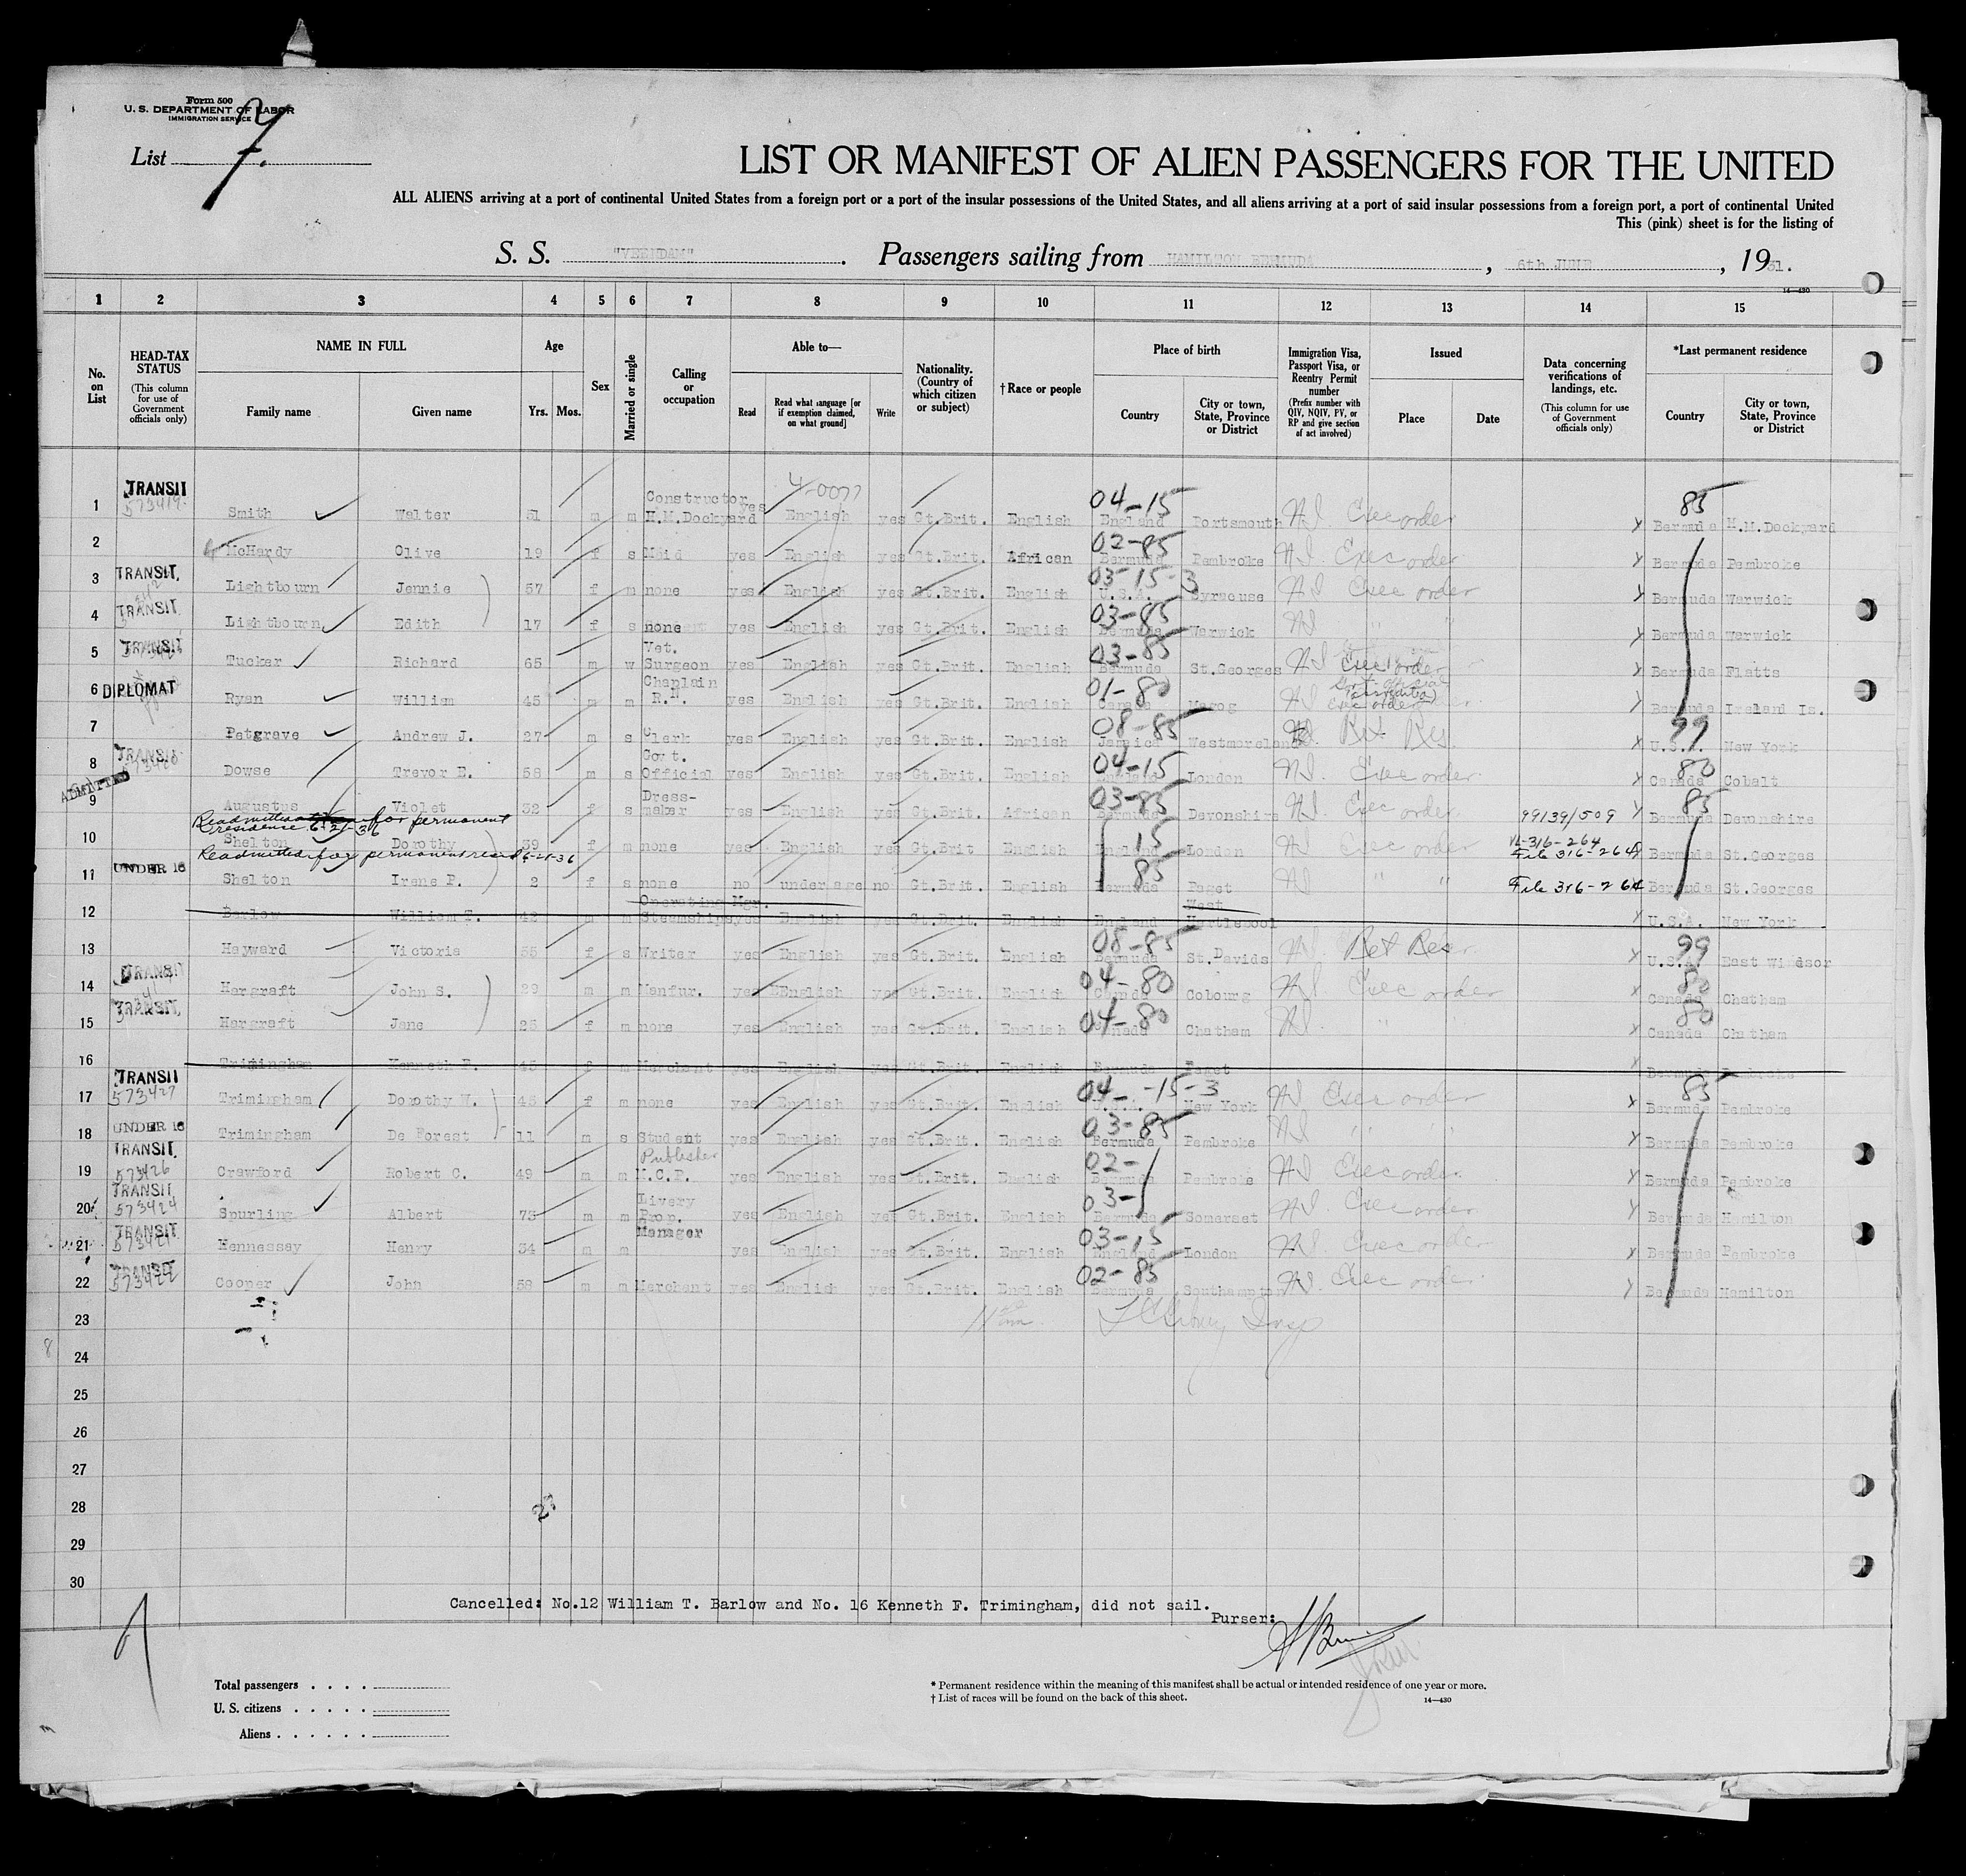 Form 500
U. S. DEPARTMENT OF LABOR
IMMIGRATION SERVICE
List 7.
LIST OR MANIFEST OF ALIEN PASSENGERS FOR THE UNITED
ALL ALIENS arriving at a port of continental United States from a foreign port or a port of the insular possessions of the United States, and all aliens arriving at a port of said insular possessions from a foreign port, a port of continental United
This (pink) sheet is for the listing of
S. S. "VEENDAM". Passengers sailing from HAMILTON BERMUDA, 6th JUNE, 1931.
14—430
1 2 3 4 5 6 7 8 9 10 11 12 13 14 15
No. on List
HEAD-TAX STATUS (This column for use of Government officials only)
NAME IN FULL
Family name Given name
Age
Yrs. Mos.
Sex
Married or single
Calling or occupation
Able to—
Read
Read what language [or if exemption claimed, on what ground]
Write
Nationality. (Country of which citizen or subject)
†Race or people
Place of birth
Country
City or town, State, Province or District
Immigration Visa, Passport Visa, or Reentry Permit number (Prefix number with QIV, NQIV, PV, or RP and give section of act involved)
Issued
Place Date
Data concerning verifications of landings, etc. (This column for use of Government officials only)
*Last permanent residence
Country
City or town, State, Province or District
1 TRANSIT 573419 Smith Walter 51 m m Constructor H.M.Dockyard yes English yes Gt.Brit. English 04-15 England Portsmouth Exec order 85 Bermuda H.M.Dockyard
2 McHardy Olive 19 f s Maid yes English yes Gt.Brit. African 02-85 Bermuda Pembroke Exec order Bermuda Pembroke
3 TRANSIT. Lightbourn Jennie 57 f m none yes English yes Gt.Brit. English 03-15-3 U.S.A. Syrcuose Exec order Bermuda Warwick
4 TRANSIT. Lightbourn Edith 17 f s none yes English yes Gt.Brit. English 03-85 Bermuda Warwick " " Bermuda Warwick
5 TRANSIT Tucker Richard 65 m w Vet. Surgeon yes English yes Gt.Brit. English 03-85 Bermuda St.Georges Exec order Bermuda Flatts
6 DIPLOMAT Ryan William 45 m m Chaplain R.N. yes English yes Gt.Brit. English 01-80 Canada Magog Exec order Bermuda Ireland Is.
7 Petgrave Andrew J. 27 m s Clerk yes English yes Gt.Brit. English 08-85 Jamaica Westmoreland Ret Res. 99 U.S.A. New York
8 TRANSIT. 573420 Dowse Trevor E. 58 m s Govt. Official yes English yes Gt.Brit. English 04-15 England London Exec order 80 Canada Cobalt
ADMITTED
9 Augustus Violet 32 f s Dress-maker yes English yes Gt.Brit. African 03-85 Bermuda Devonshire Exec order 99139/509 85 Bermuda Devonshire
Readmitted for permanent residence 6-21-36
10 Shelton Dorothy 39 f m none yes English yes Gt.Brit English 15 England London Exec order VL-316-264 File 316-264 Bermuda St.Georges
Readmitted for permanent resid 6-21-36
11 UNDER 16 Shelton Irene P. 2 f s none no under age no Gt.Brit. English 85 Bermuda Paget " " File 316-264 Bermuda St.Georges
12 Barlow William T. 42 m m Operating Mgr. Steamships yes English yes Gt.Brit. English England West Hartlepool U.S.A. New York
13 Hayward Victoria 55 f s Writer yes English yes Gt.Brit. English 08-85 Bermuda St.Davids Ret Res 99 U.S.A. East Windsor
14 TRANSIT Hargraft John S. 29 m m Manfur. yes English yes Gt.Brit. English 04-80 Canada Cobourg Exec order 80 Canada Chatham
15 TRANSIT. Hargraft Jane 25 f m none yes English yes Gt.Brit. English 04-80 Canada Chatham " " 80 Canada Chatham
16 Trimingham Kenneth F. 45 f m Merchant yes English yes Gt.Brit. English Bermuda Paget Bermuda Pembroke
17 TRANSIT 573427 Trimingham Dorothy W. 45 f m none yes English yes Gt.Brit. English 04-15-3 U.S.A. New York Exec order 85 Bermuda Pembroke
18 UNDER 16 Trimingham De Forest 11 m s Student yes English yes Gt.Brit. English 03-85 Bermuda Pembroke " " Bermuda Pembroke
19 TRANSIT. 573426 Crawford Robert C. 49 m m Publisher M.C.P. yes English yes Gt.Brit. English 02- Bermuda Pembroke Exec order Bermuda Pembroke
20 TRANSIT. 573424 Spurling Albert 73 m m Livery Prop. yes English yes Gt.Brit. English 03- Bermuda Somerset Exec order Bermuda Hamilton
21 TRANSIT. 573421 Hennessay Henry 34 m m Manager yes English yes Gt.Brit. English 03-15 England London Exec order Bermuda Pembroke
22 TRANSIT 573422 Cooper John 58 m m Merchant yes English yes Gt.Brit. English 02-85 Bermuda Southampton Exec order Bermuda Hamilton
23
24
25
26
27
28
29
30
Cancelled: No.12 William T. Barlow and No. 16 Kenneth F. Trimingham, did not sail.
Purser:
Total passengers . . . .
U. S. citizens . . . . .
Aliens . . . . . .
* Permanent residence within the meaning of this manifest shall be actual or intended residence of one year or more.
† List of races will be found on the back of this sheet.
14—430